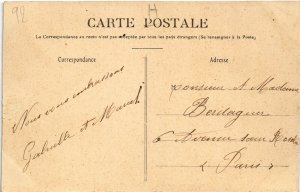 92 H
CARTE POSTALE
La Correspondance au recto n'est pas acceptée par tous les pays étrangers (Se renseigner à la Poste).
Correspondance
Adresse
Nous vous embrassons
Gabrielle et
Monsieur et Madame
6 Avenue
Paris